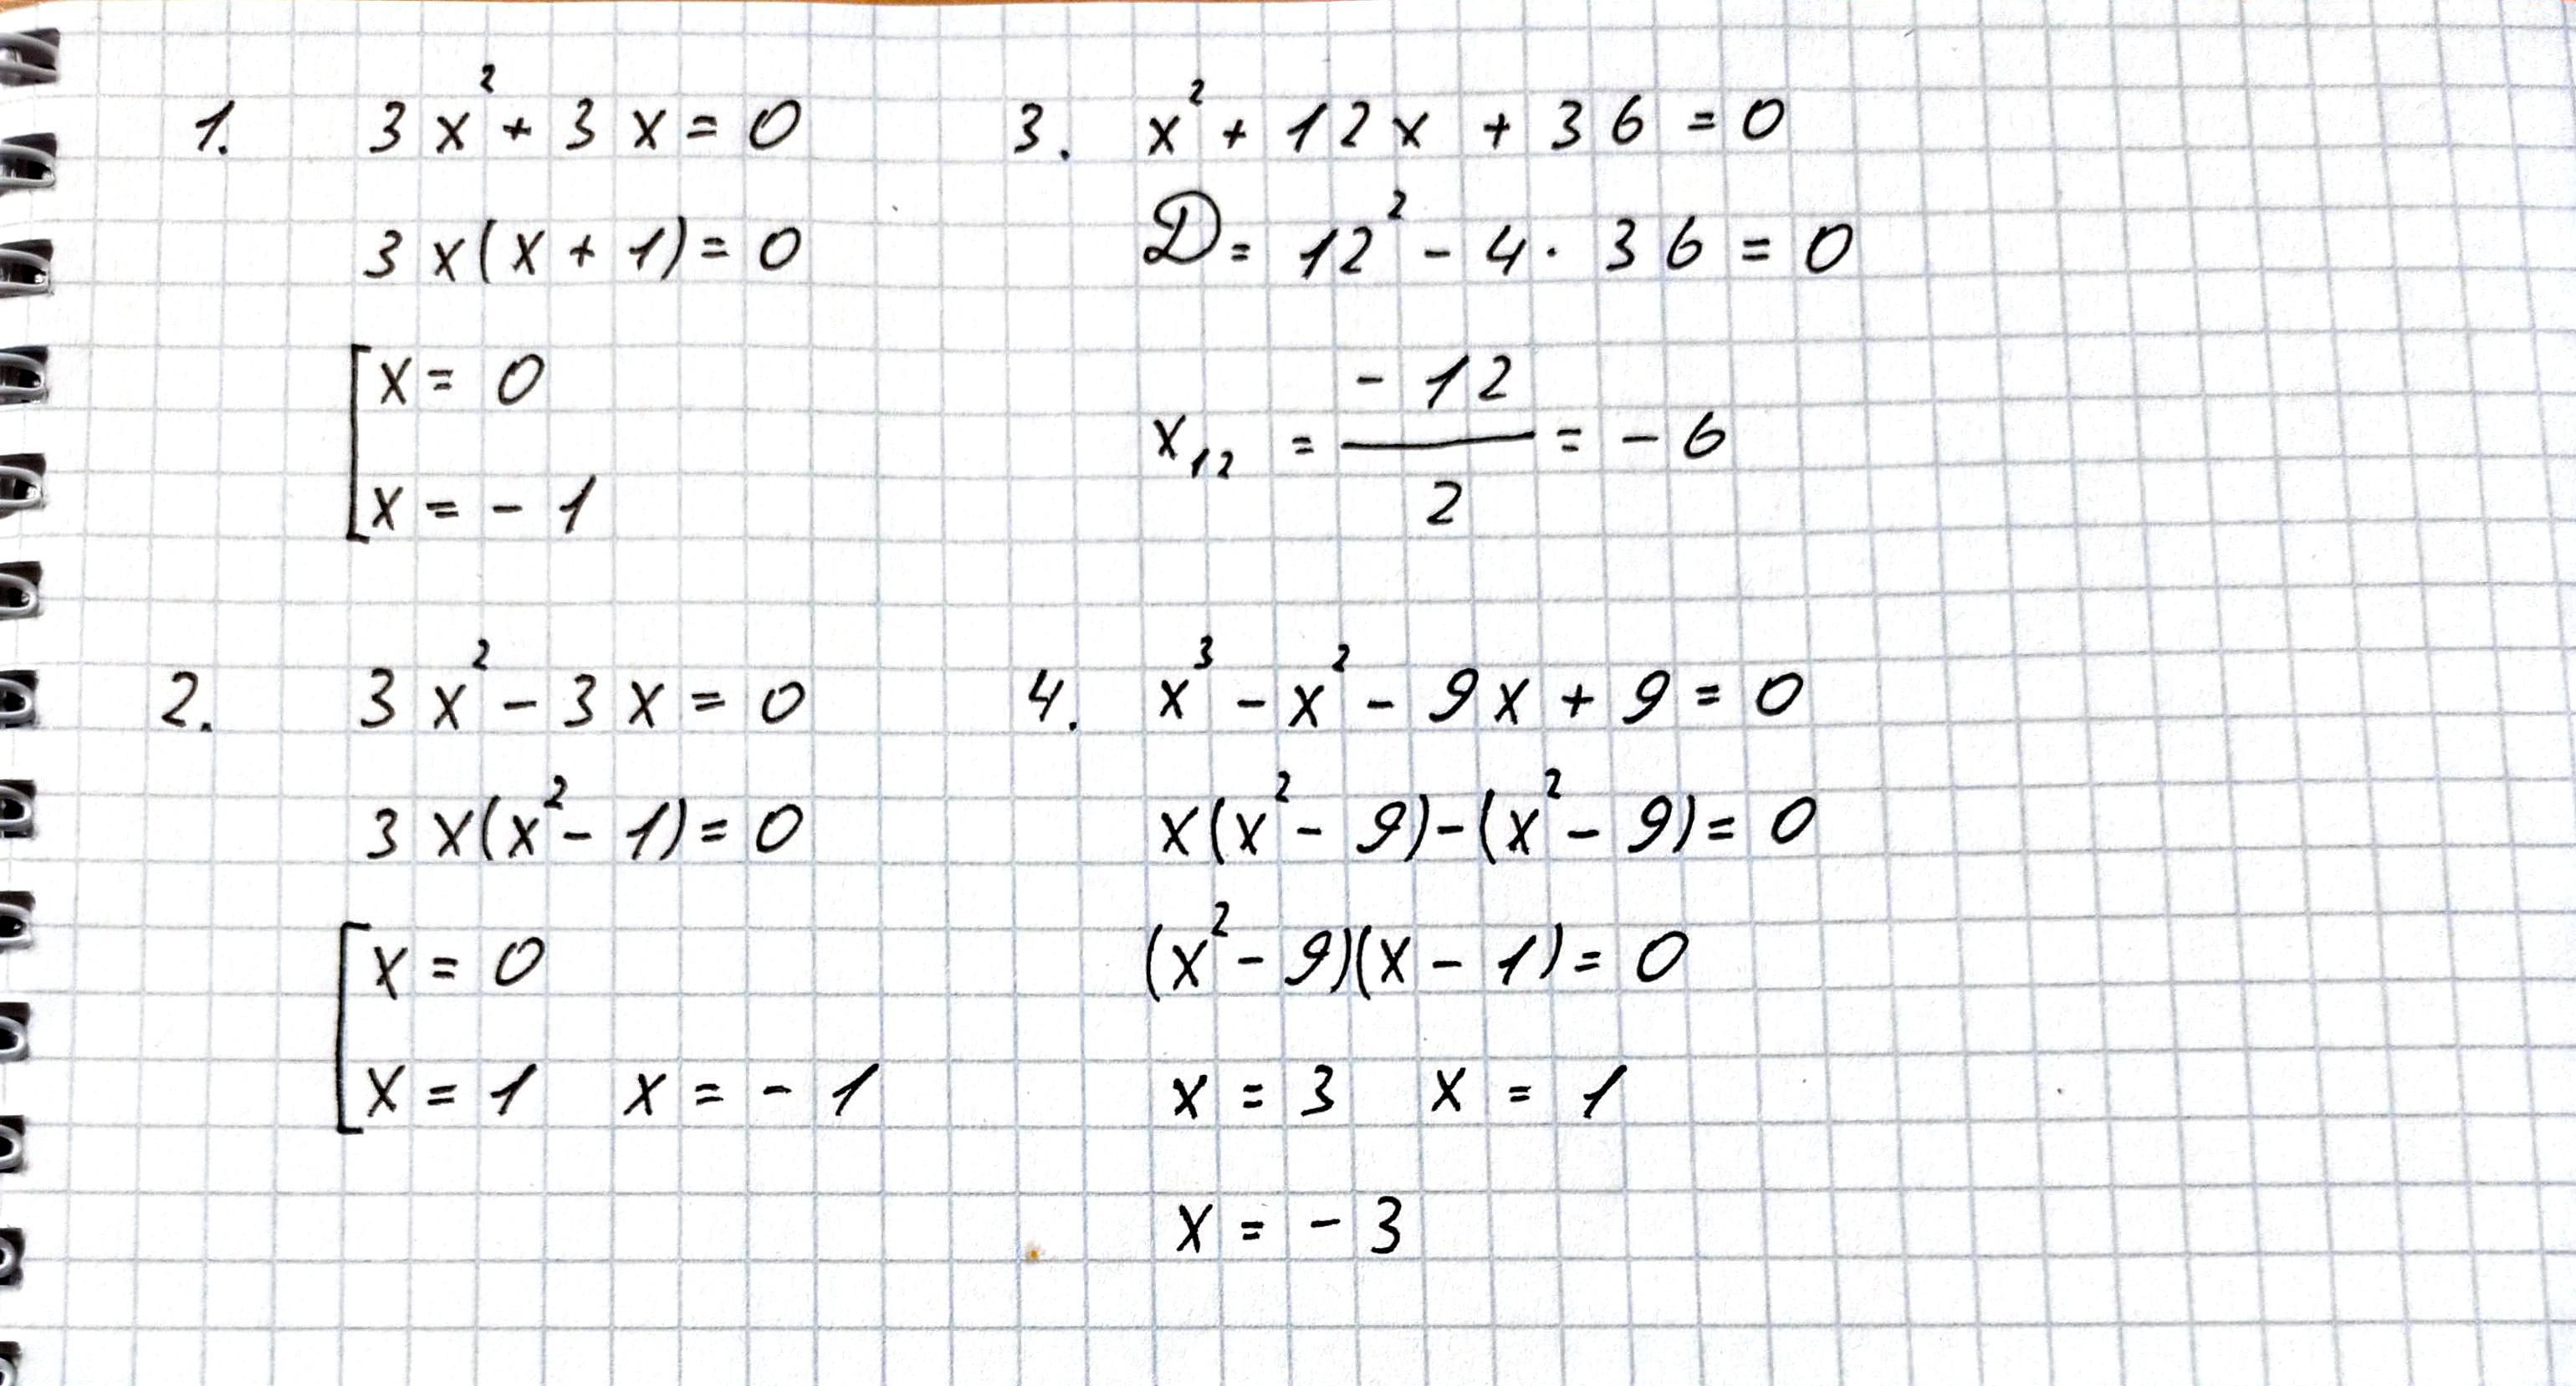 1. 3x² + 3x = 0
3x(x + 1) = 0
[x = 0
x = - 1
2. 3x² - 3x = 0
3x(x² - 1) = 0
[x = 0
x = 1 x = - 1
3. x² + 12x + 36 = 0
D = 12² - 4 · 36 = 0
x₁₂ = -12/2 = - 6
4. x³ - x² - 9x + 9 = 0
x(x² - 9) - (x² - 9) = 0
(x² - 9)(x - 1) = 0
x = 3 x = 1
x = - 3